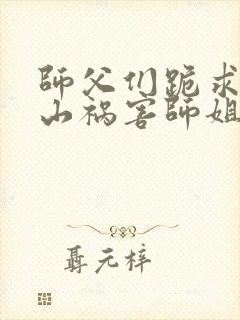 師父们跪求
山祸害師姐
聶元梓